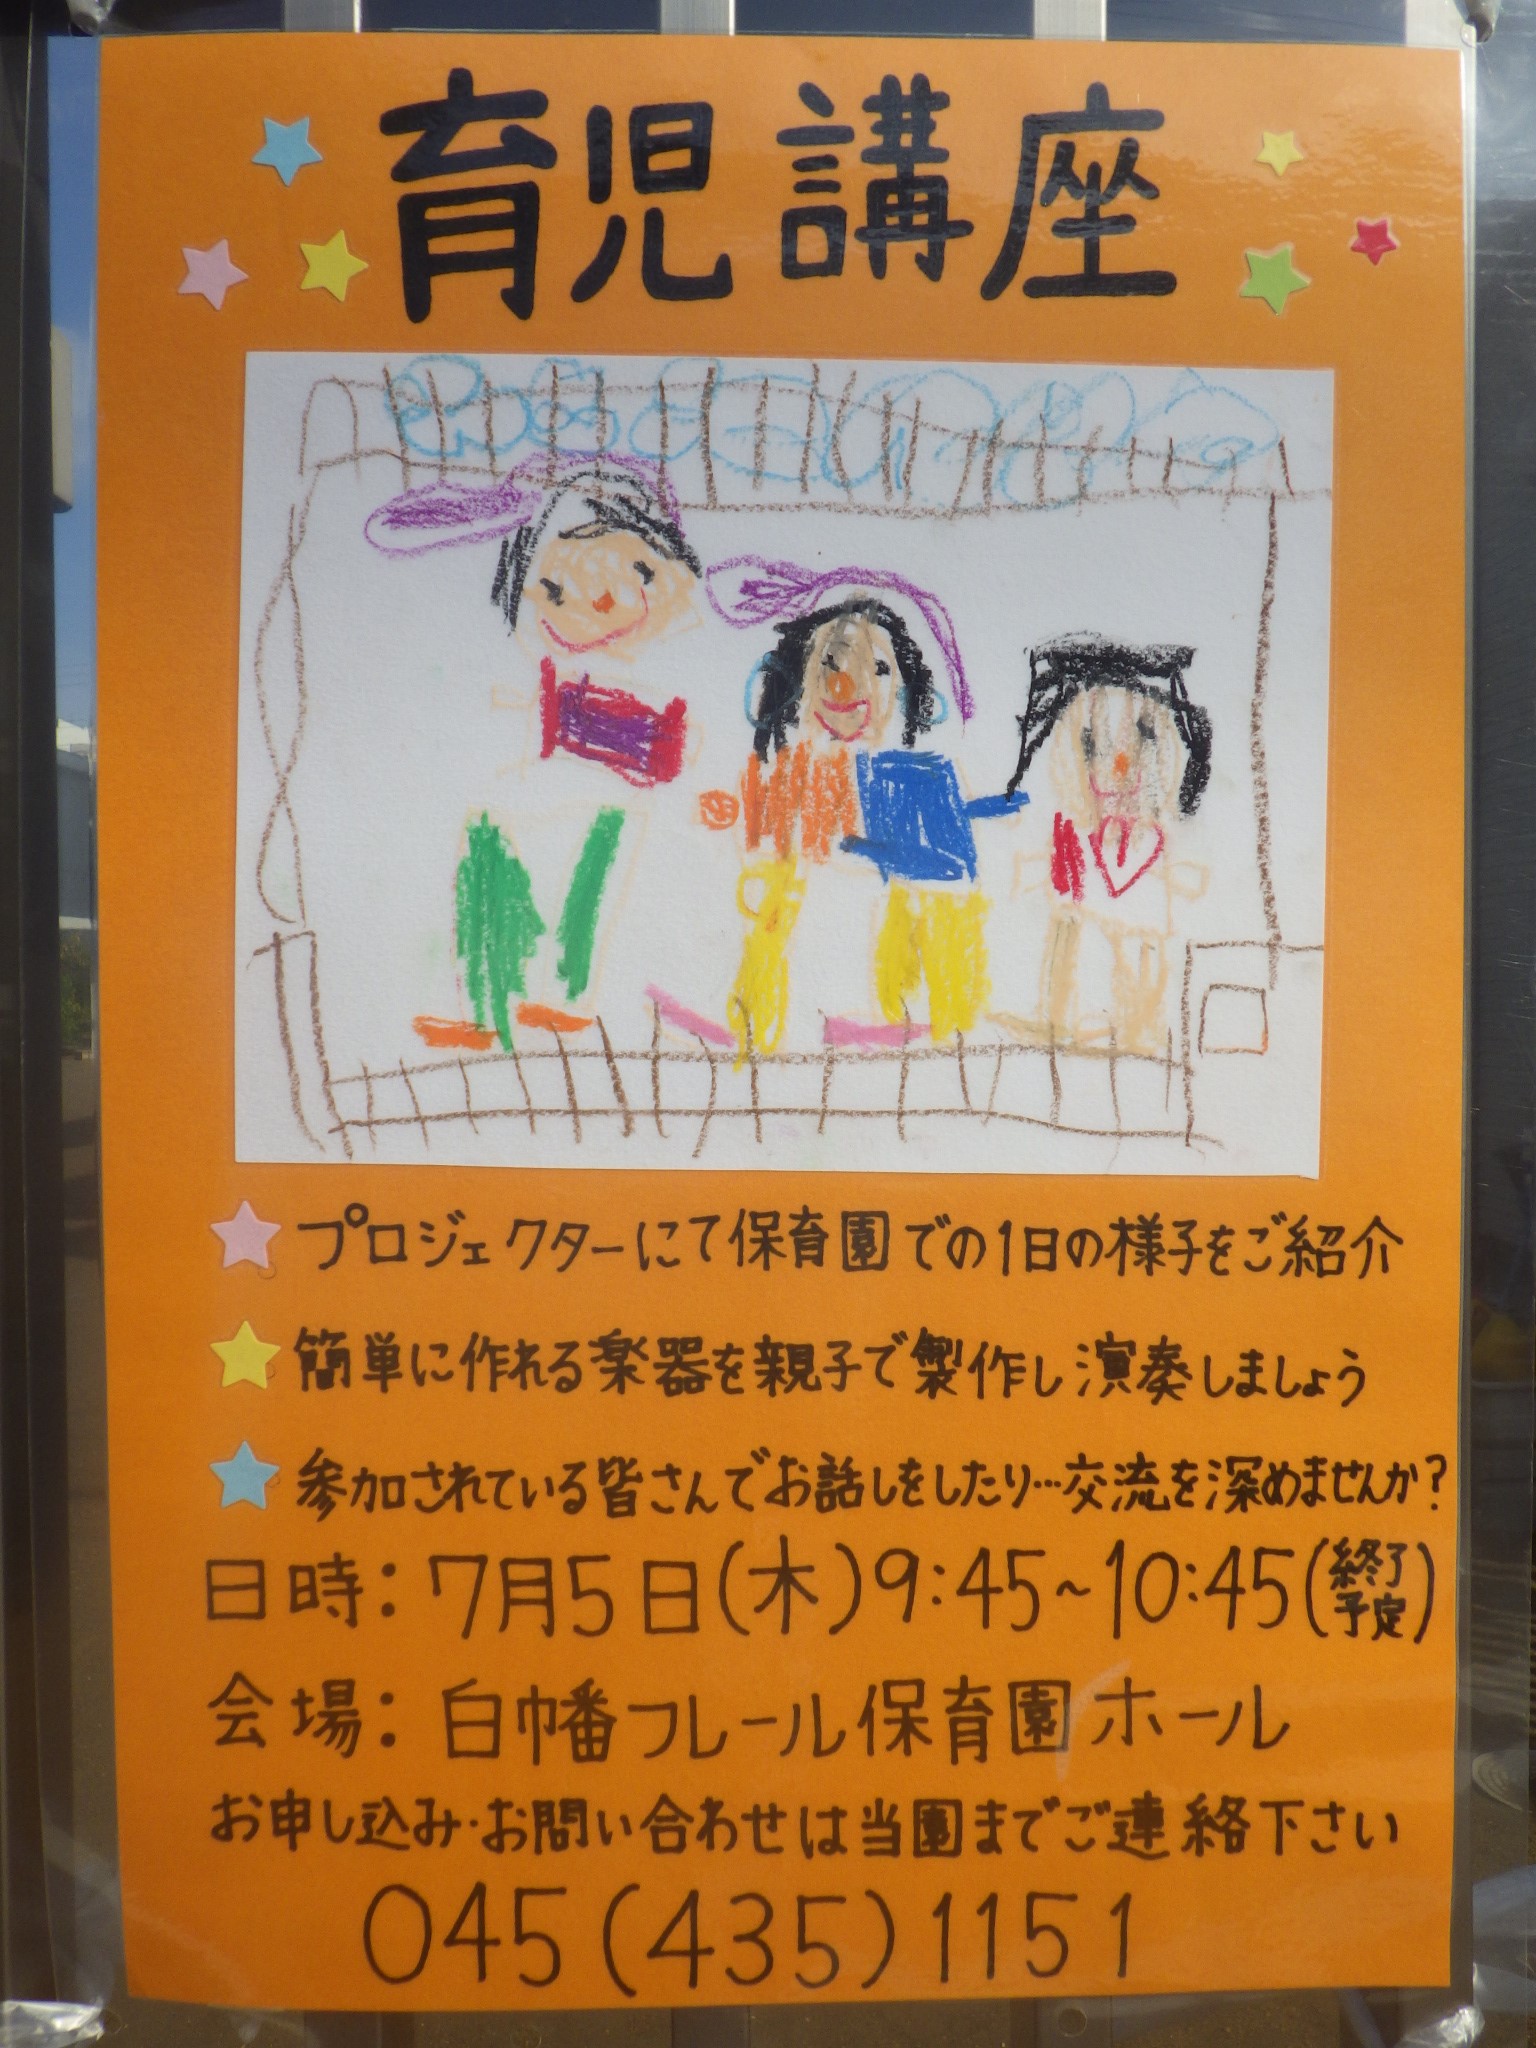 育児講座
プロジェクターにて保育園での1日の様子をご紹介
簡単に作れる楽器を親子で製作し演奏しましょう
参加されている皆さんでお話しをしたり…交流を深めませんか？
日時：7月5日(木)9:45~10:45(終了予定)
会場：白幡フレール保育園ホール
お申し込み・お問い合わせは当園までご連絡下さい
045(435)1151